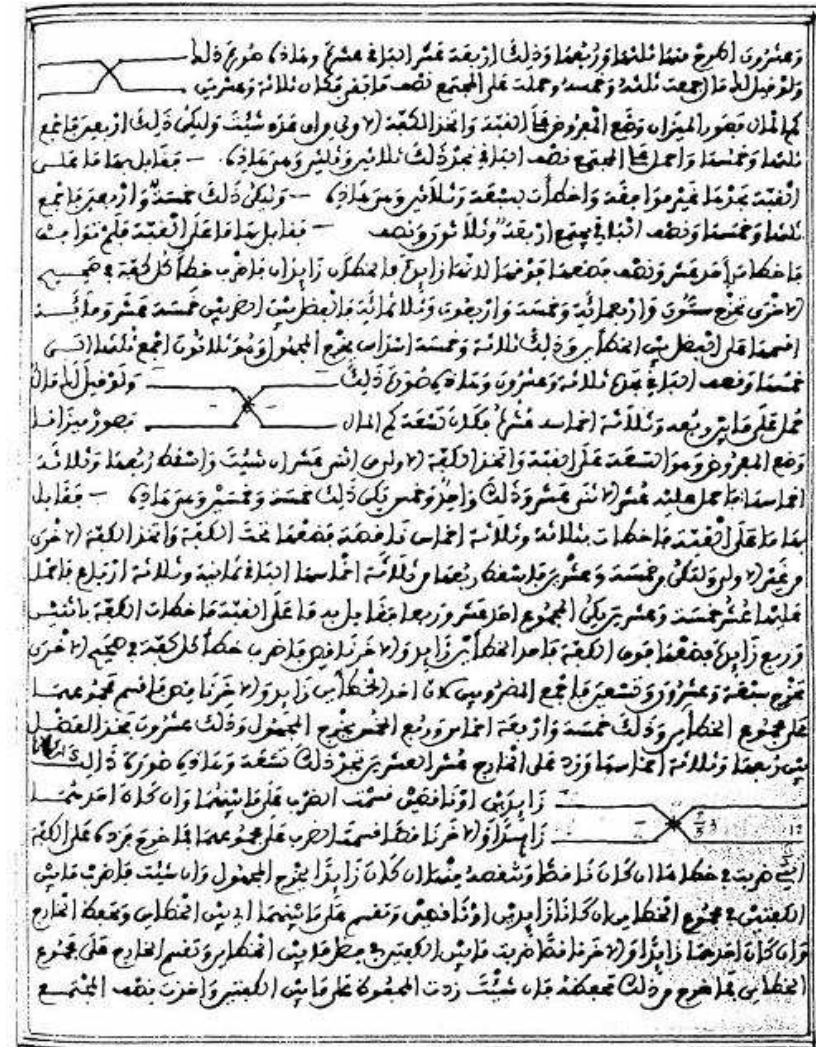 وعشرون اطرح منها ثلثها وربعها وذلك أربعة عشر الباقي عشرة وهاذه صورة ذلك
ولو قيل لك مال جمعت ثلثه وخمسه وحملت على المجتمع نصف ما بقي فكان ثلاثة وعشرين
كم المال فصور الميزان وضع المعروض على القبة واتخذ الكفة الاولى من أي عدد شئت وليكن ذلك أربعين فاجمع
ثلثها وخمسها واحمل على المجتمع نصف الباقي تجد ذلك ثلاثين وثلثين وهي هاذه فقابل بها ما على
القبة تجدها غير موافقة وأخطأت بسبعة وثلثين وهي هاذه وليكن ذلك خمسة وأربعين فاجمع
ثلثها وخمسها ونصف الباقي يجتمع أربعة وثلاثون ونصف فقابل بها ما على القبة فلم توافيه
فأخطأت بأحد عشر ونصف فضعها فوقها لأنها زايد فالخطآن زايدان فاضرب خطأ كل كفة في صحيح
الاخرى تخرج ستون وأربعمائة وخمسة وأربعون وثلاثمائة فالفضل بين الضربين خمسة عشر ومائة
اقسمها على الفضل بين الخطأين وذلك ثلاثة وخمسة أسداس يخرج المجهول وهو ثلاثون اجمع ثلثها الى
خمسها ونصف الباقي تجد ثلاثة وعشرون وهاذه صورة ذلك ولو قيل لك مال
حمل على ما بين ربعه وثلاثة أخماسه عشره فكان تسعة كم المال فصور ميزانا
وضع المعروض وهو التسعة على القبة واتخذ الكفة الاولى من اثني عشر ان شئت وأسقط ربعها وثلاثة
أخماسها فاحمل عليه عشر الاثني عشر وذلك واحد وخمس يكن ذلك خمسة وخمسين وهي هاذه فقابل
بها ما على القبة فأخطأت بثلاثة وثلاثة أخماس ناقصة فضعها تحت الكفة واتخذ الكفة الاخرى
من غير الاولى ولتكن من خمسة وعشرين فأسقط ربعها من ثلاثة أخماسها الباقي ثمانية وثلاثة أرباع فاحمل
عليها عشر خمسة وعشرين يكن المجموع أحد عشر وربعا فقابل به ما على القبة فأخطأت الكفة باثنين
وربع زايد فضعها فوق الكفة فأحد الخطأين زايد والاخر ناقص فاضرب خطأ كل كفة في صحيح الاخرى
تخرج سبعة وعشرون وتسعين فاجمع المضروبين لان أحد الخطأين زايد والاخر ناقص فاقسم مجموعهما
على مجموع الخطأين وذلك خمسة وأربعة أخماس وربع الخمس يخرج المجهول وذلك عشرون فخذ الفضل
بين ربعها وثلاثة أخماسها وزد على الخارج عشر العشرين تجد ذلك تسعة وهاذه صورة ذالك
زايدين أو ناقصين قسمت الضرب على ما بينهما وان كان أحدهما
زايدا والاخر ناقصا قسمت الضرب على مجموعهما فما خرج فزده على الكفة
التي ضربت في خطاها ان كان ناقصا وتنقصه منها ان كان زايدا يخرج المجهول وان شئت فاضرب ما بين
الكفتين في مجموع الخطأين ان كانا زايدين أو ناقصين وتقسم على ما بينهما أي بين الخطأين وتحفظ الخارج
وان كان أحدهما زايدا والاخر ناقصا ضربت ما بين الكفتين في ما بين الخطأين وتقسم الخارج على مجموع
الخطأين فما خرج من ذلك تحفظه فان شئت زدت المحفوظ على ما بين الكفتين وأخذت نصف المجتمع